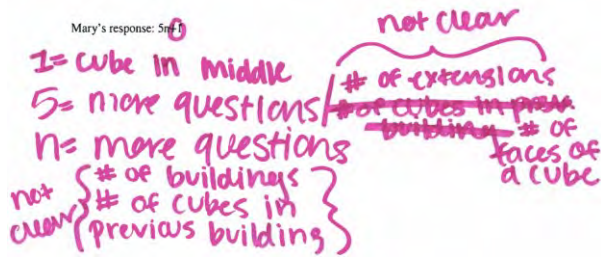 Mary's response: 5n+1
not clear
1= cube in middle
5= more questions / # of extensions
# of cubes in prev. building # of faces of a cube
n= more questions
not clear { # of buildings
# of cubes in
previous building }